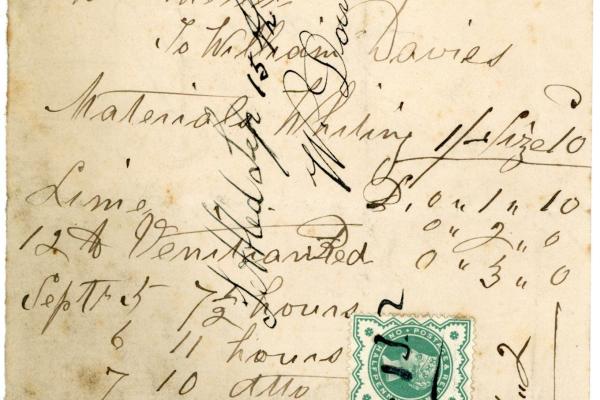 To William Davies
Materials Whiting 1/- Size 10
£. 0 " 1 " 10
Lime 0 " 2 " 0
12 lb Venitian Red 0 " 3 " 0
Septr 5 7½ hours
6 11 hours
7 10 dtto
Settled Sep 15th
W Dav
POSTAGE